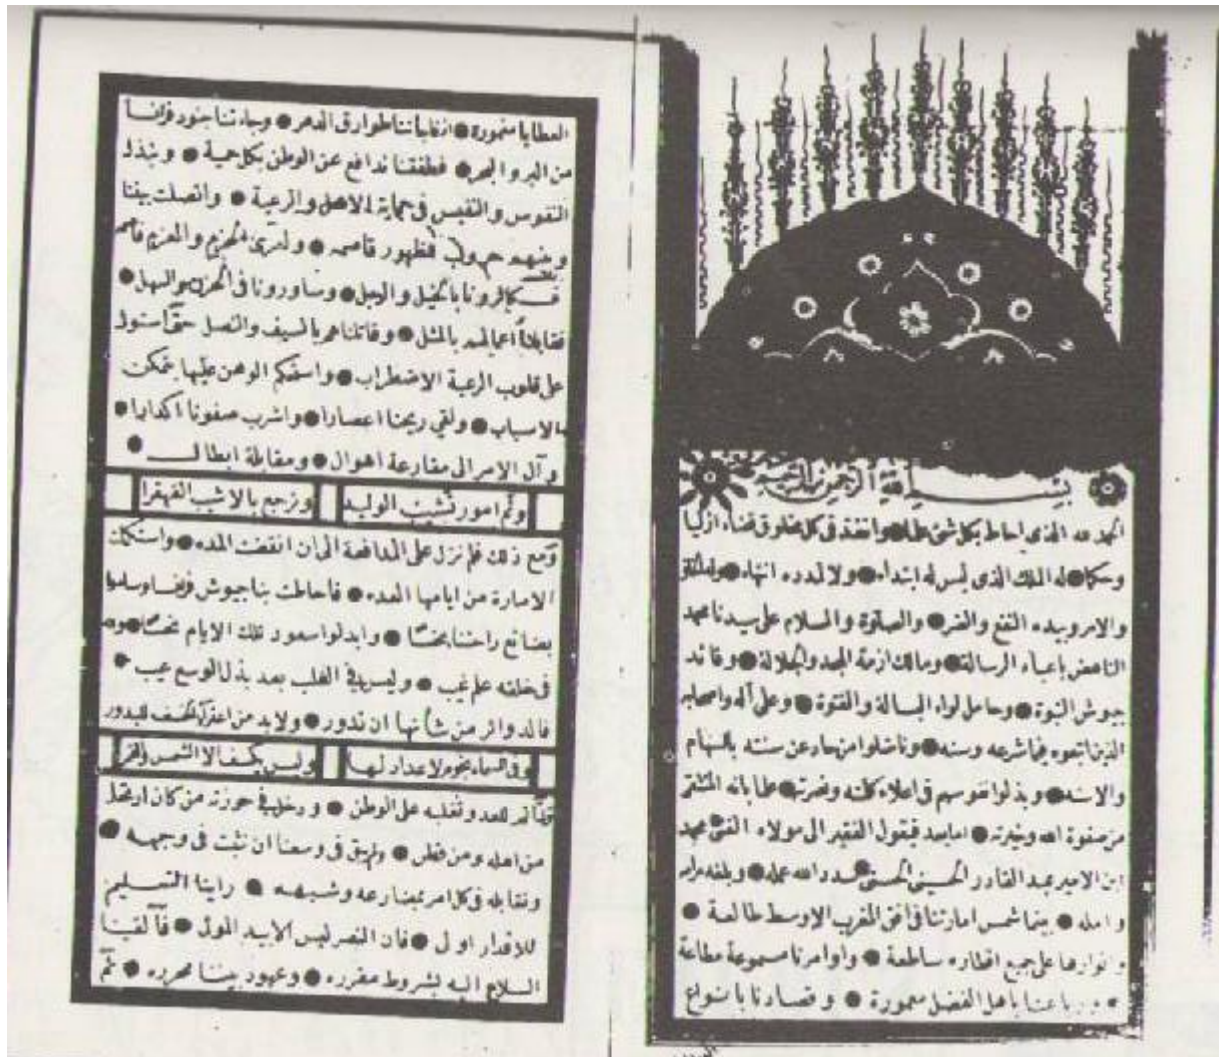 بسم الله الرحمن الرحيم
الحمد لله الذي احاط بكل شئ علما وانفذ في كل مخلوق قضاء ازليا
وحكما له الملك الذي ليس له ابتداء ولا لمدده انتهاء وله الخلق
والامر وبيده النفع والضر والصلوة والسلام على سيدنا محمد
الناهض باعباء الرسالة ومالك ازمة المجد والجلالة وقائد
جيوش النبوة وحامل لواء البسالة والفتوة وعلى آله واصحابه
الذين اتبعوه فيما شرعه وسنه وناضلوا من حاد عن سنته بالسهام
والاسنه وبذلوا نفوسهم في اعلاء كلمته ونصرته
من صفوة الله وخيرته اما بعد فيقول الفقير الى مولاه الغني محمد
ابن الامير عبد القادر الحسيني الحسني سدد الله عمله وبلغه مرامه
وامله بينما شمس امارتنا في افق المغرب الاوسط طالعة
وانوارها على جميع اقطاره ساطعة واوامرنا مسموعة مطاعة
باهل الفضل معمورة وقصادنا بانواع
العطايا مغمورة اذ فاجأتنا طوارق الدهر وجاءتنا جنود فرانسا
من البر والبحر فطفقنا ندافع عن الوطن بكل حمية ونبذل
النفوس والنفيس في حماية الاهل والرعية واتصلت بيننا
وبينهم حروب للظهور قاصمه ولعرى الحزم والعزم فاصمه
بالخيل والرجل وساورونا في الحزن والسهل
فقابلنا اعمالهم بالمثل وقاتلناهم بالسيف والنصل حتى استولى
على قلوب الرعية الاضطراب واستحكم الوهن عليها بتمكن
الاسباب ولقي ريحنا اعصارا واشرب صفونا اكدارا
وآل الامر الى مقارعة اهوال ومقابلة ابطال
وثم امور تشيب الوليد ونرجع بالاشيب القهقرا
ومع ذلك فلم نزل على المدافعة الى ان انقضت المده واستكملت
الامارة من ايامها العده فاحاطت بنا جيوش فرنسا وساموا
بضائع راحتنا بخسا وابدلوا سعود تلك الايام نحسا
في خلقه علم غيب وليس في الغلب بعد بذل الوسع عيب
فالدوائر من شأنها ان تدور ولا بد من اعتراء الخسف للبدور
وفي السماء نجوم لا عداد لها وليس يكسف الا الشمس والقمر
للعدو تغلبه على الوطن ودخل في حوزته من كان ارتحل
من اهله ومن قطن ولم يبق في وسعنا ان نثبت في وجهه
ونقابله في كل امر بمضارعه وشبهه راينا التسليم
للاقدار اولى فان النصر ليس الا بيد المولى فآلقينا
السلام اليه بشروط مقرره وعهود بيننا محرره ثم